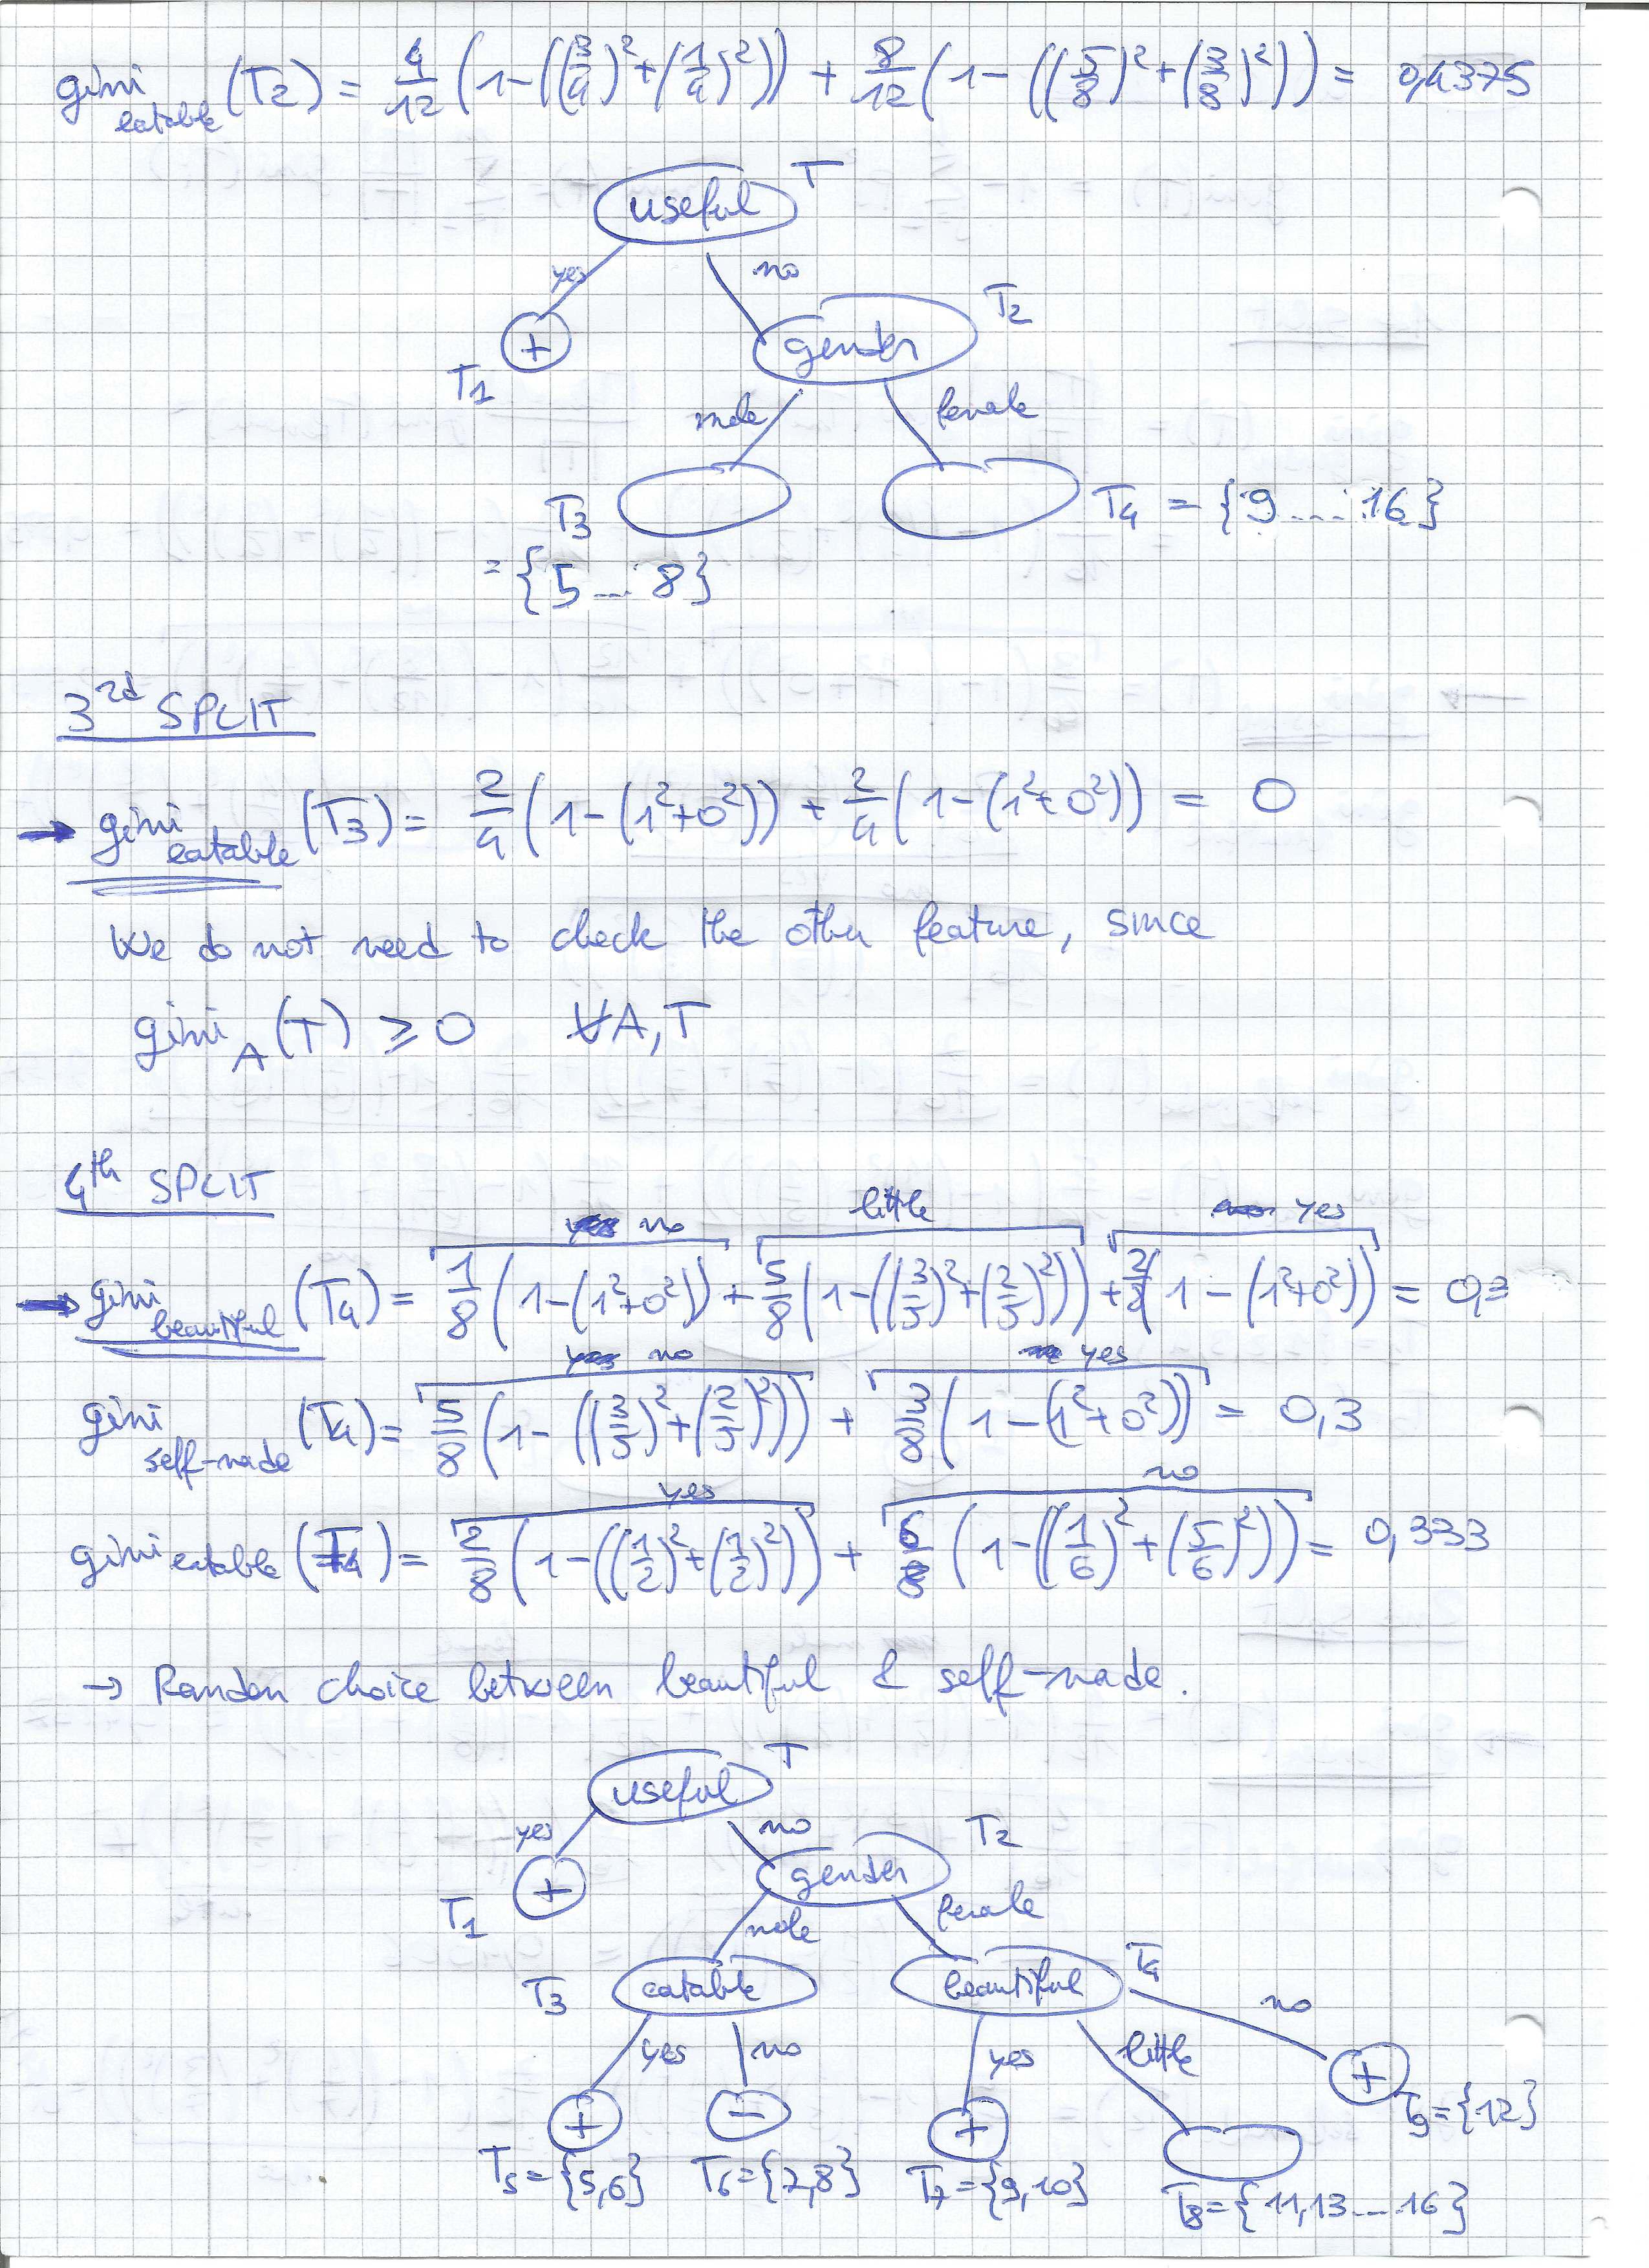 gini_eatable (T2) = 4/12 (1-((3/4)²+(1/4)²)) + 8/12 (1-((5/8)²+(3/8)²)) = 0,4375
useful T
yes no
+ gender T2
T1
male female
T3 T4 = {9....16}
= {5...8}
3rd SPLIT
→ gini_eatable (T3) = 2/4 (1-(1²+0²)) + 2/4 (1-(1²+0²)) = 0
We do not need to check the other feature, since
gini_A (T) ≥ 0 ∀A,T
4th SPLIT
no little yes
→ gini_beautiful (T4) = 1/8 (1-(1²+0²)) + 5/8 (1-((3/5)²+(2/5)²)) + 2/8 (1-(1²+0²)) = 0,3
no yes
gini_self-made (T4) = 5/8 (1-((3/5)²+(2/5)²)) + 3/8 (1-(1²+0²)) = 0,3
yes no
gini_eatable (T4) = 2/8 (1-((1/2)²+(1/2)²)) + 6/8 (1-((1/6)²+(5/6)²)) = 0,333
→ Random choice between beautiful & self-made.
useful T
yes no
+ gender T2
T1
male female
T3 eatable beautiful T4
yes no yes little no
+ - + +
T5={5,6} T6={7,8} T7={9,10} T9={12}
T8={11,13....16}